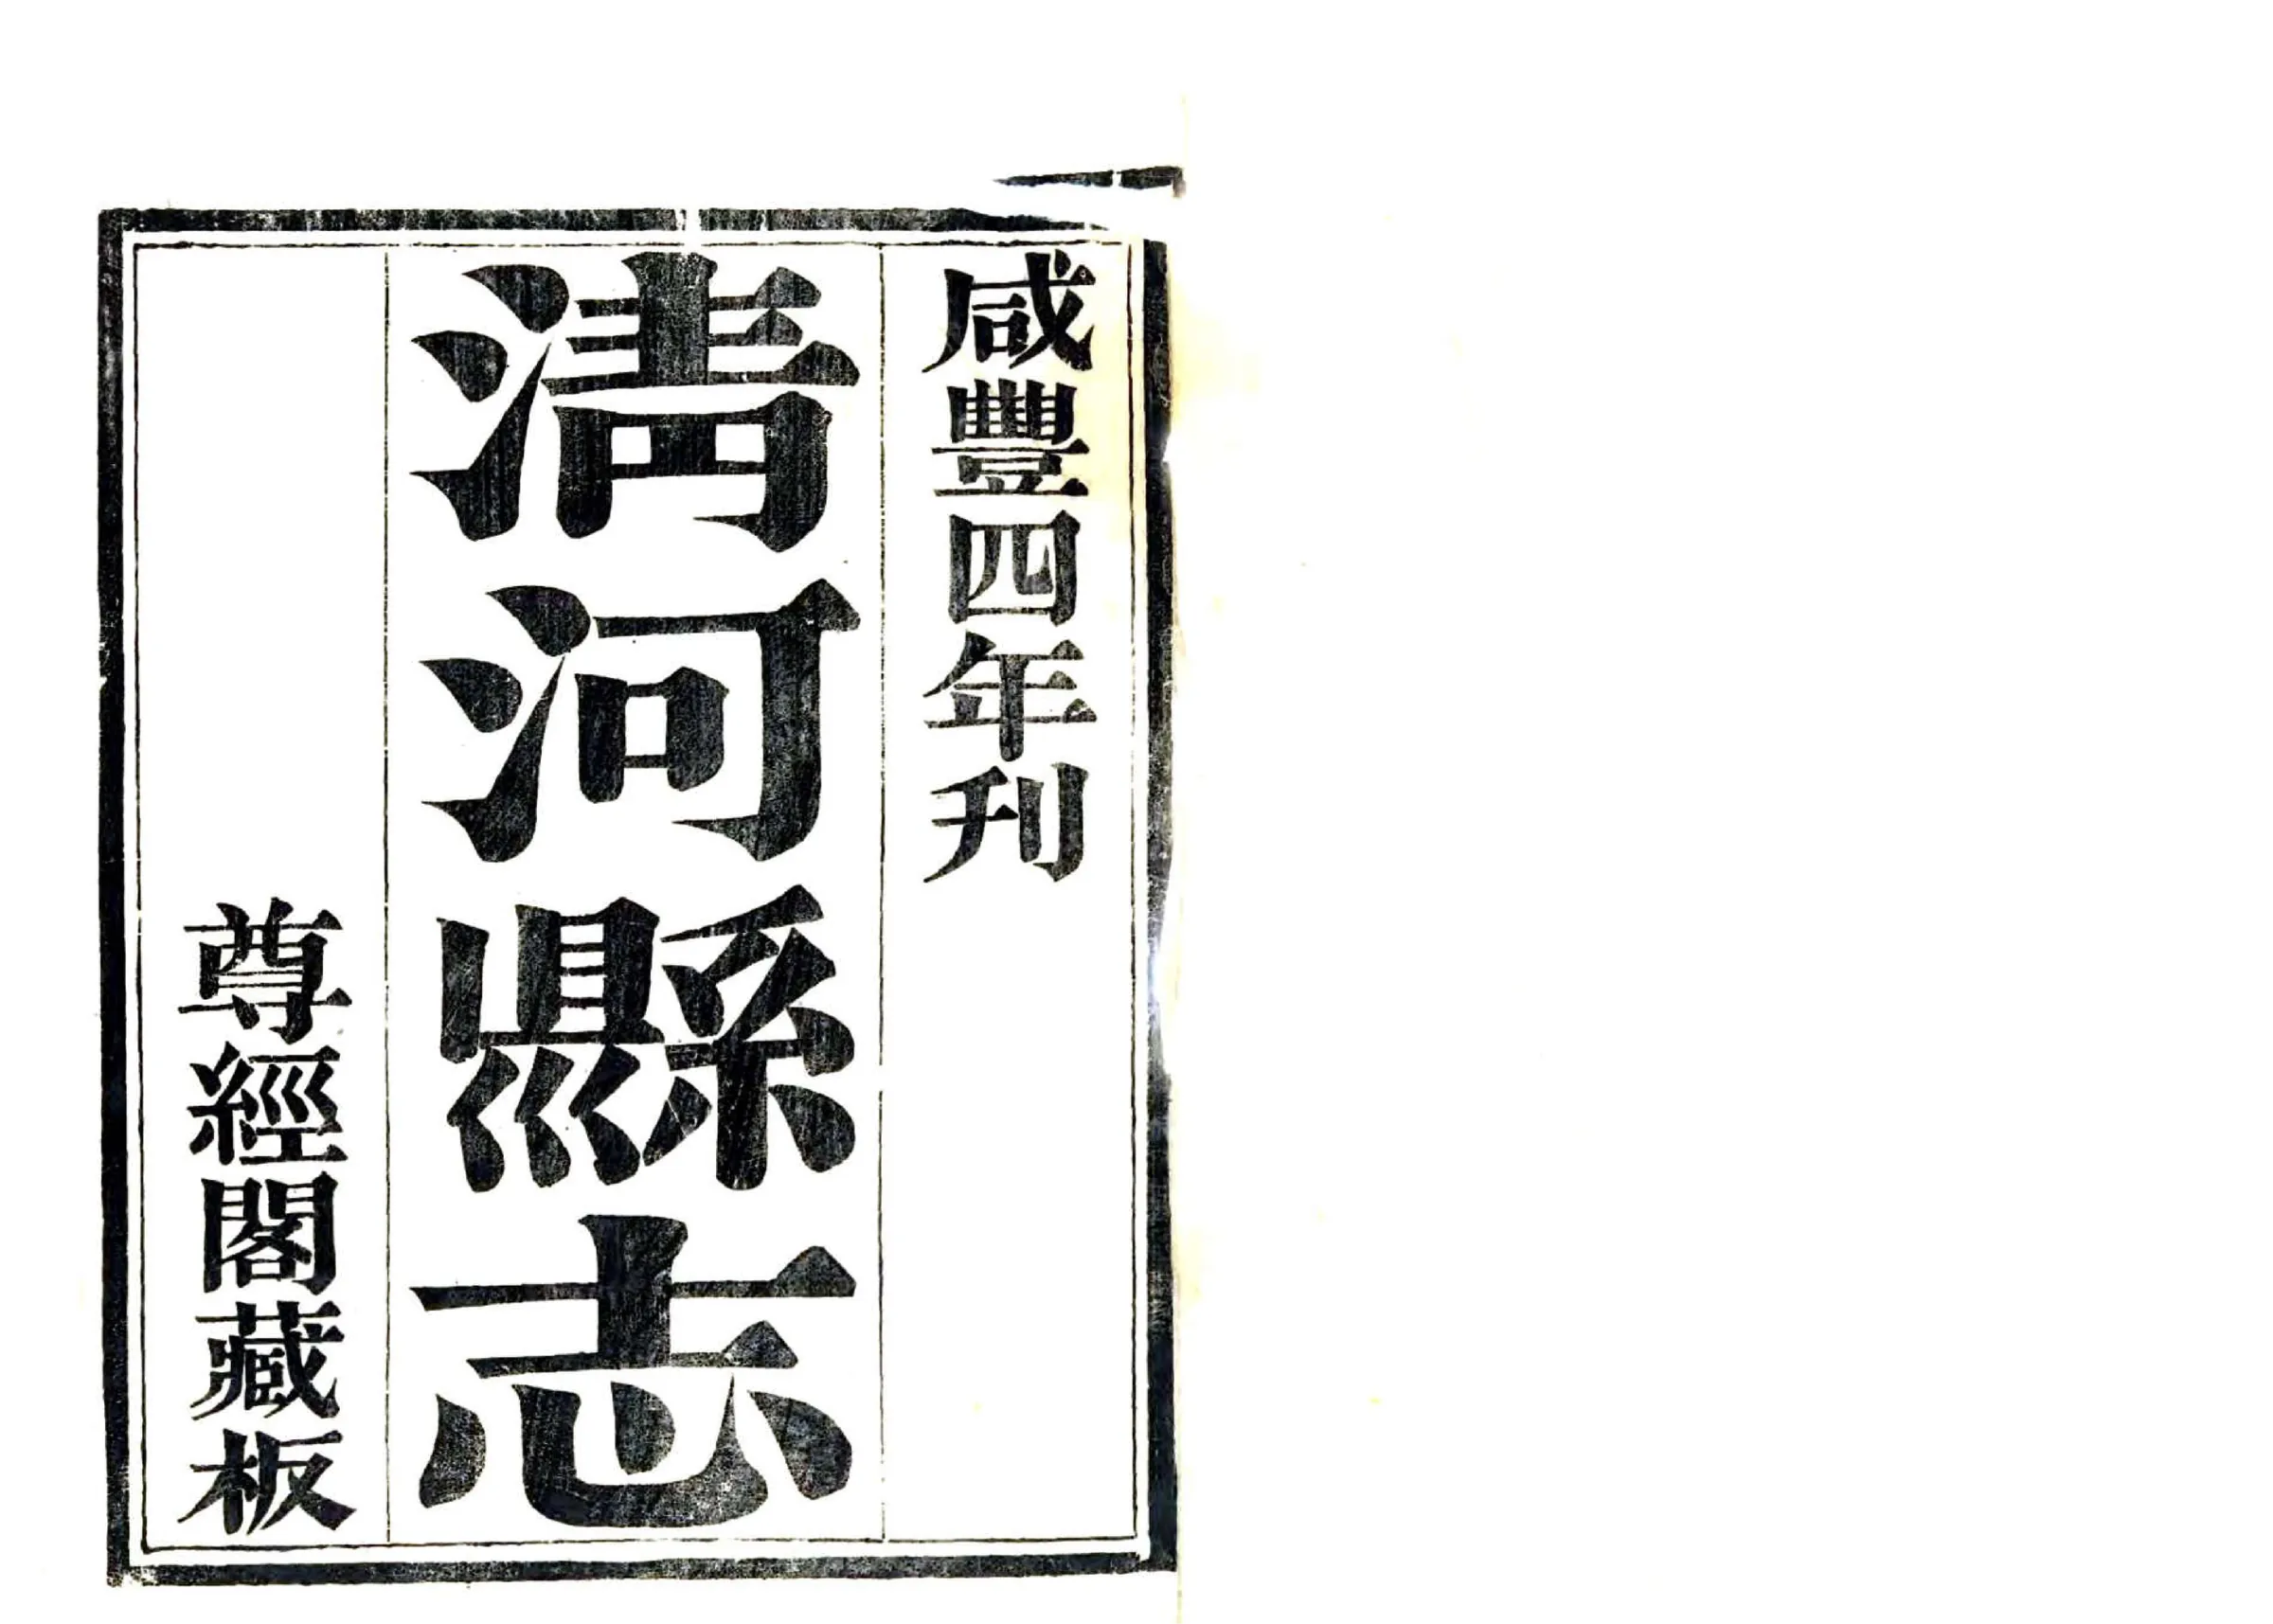 咸豐四年刊
清河縣志
尊經閣藏板